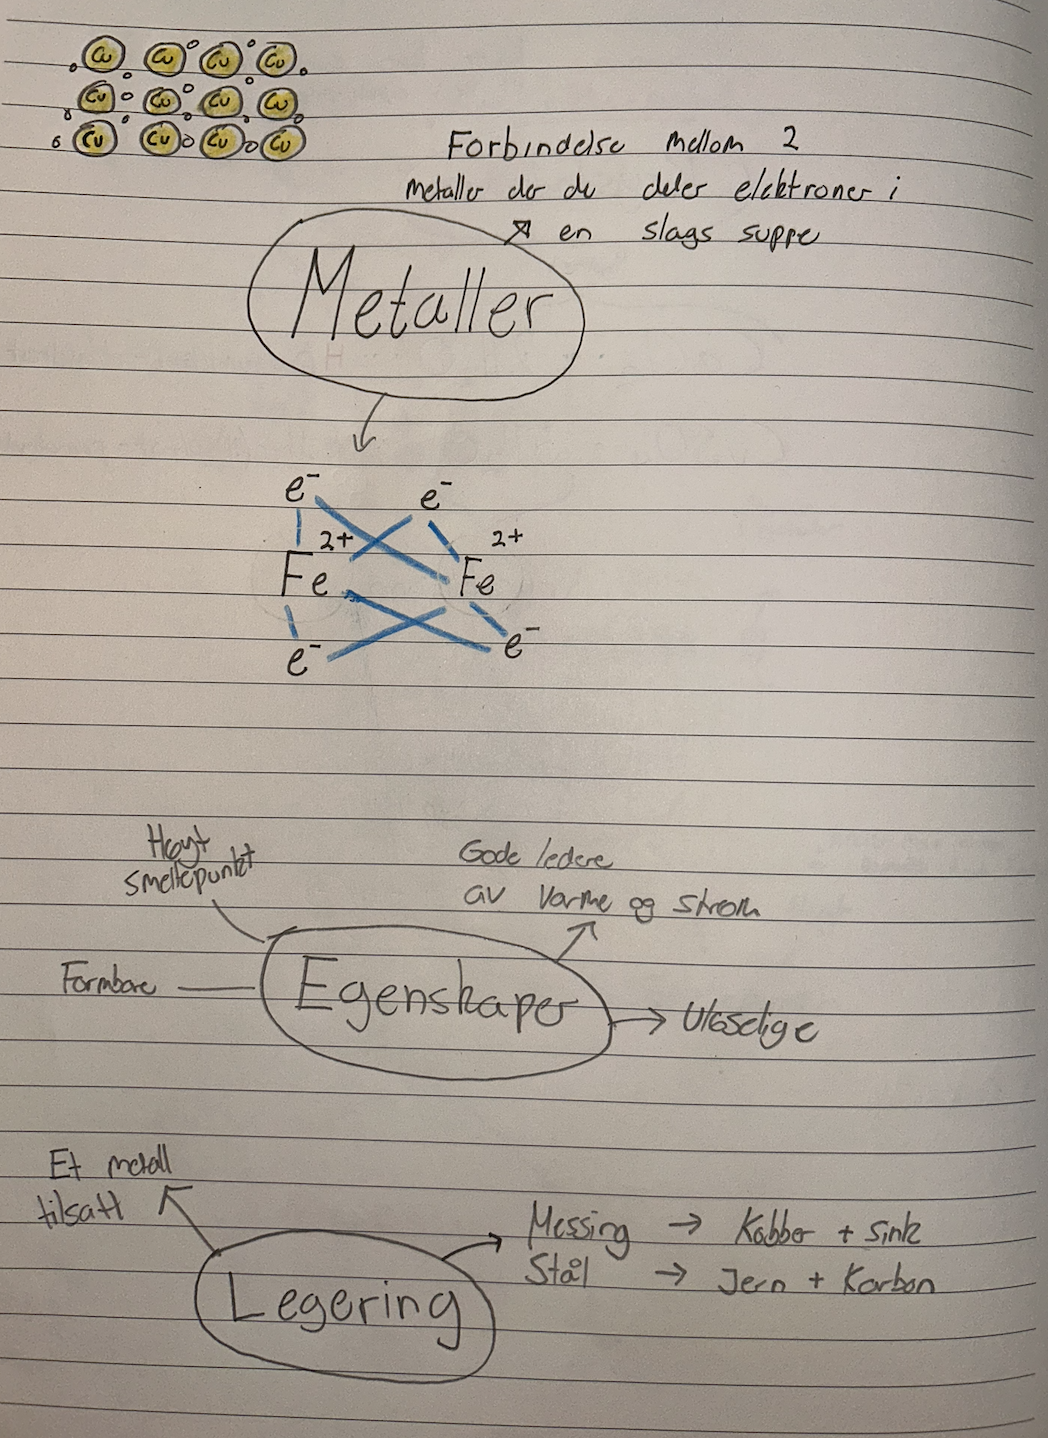 Cu Cu Cu Cu
Cu Cu Cu Cu
Cu Cu Cu Cu
Forbindelse mellom 2
metaller der de deler elektroner i
en slags suppe
Metaller
e⁻ e⁻
Fe 2+ Fe 2+
e⁻ e⁻
Høyt
smeltepunkt
Gode ledere
av varme og strøm
Formbare
Egenskaper
Uløselige
Et metall
tilsatt
Messing → Kobber + sink
Stål → Jern + Karbon
Legering